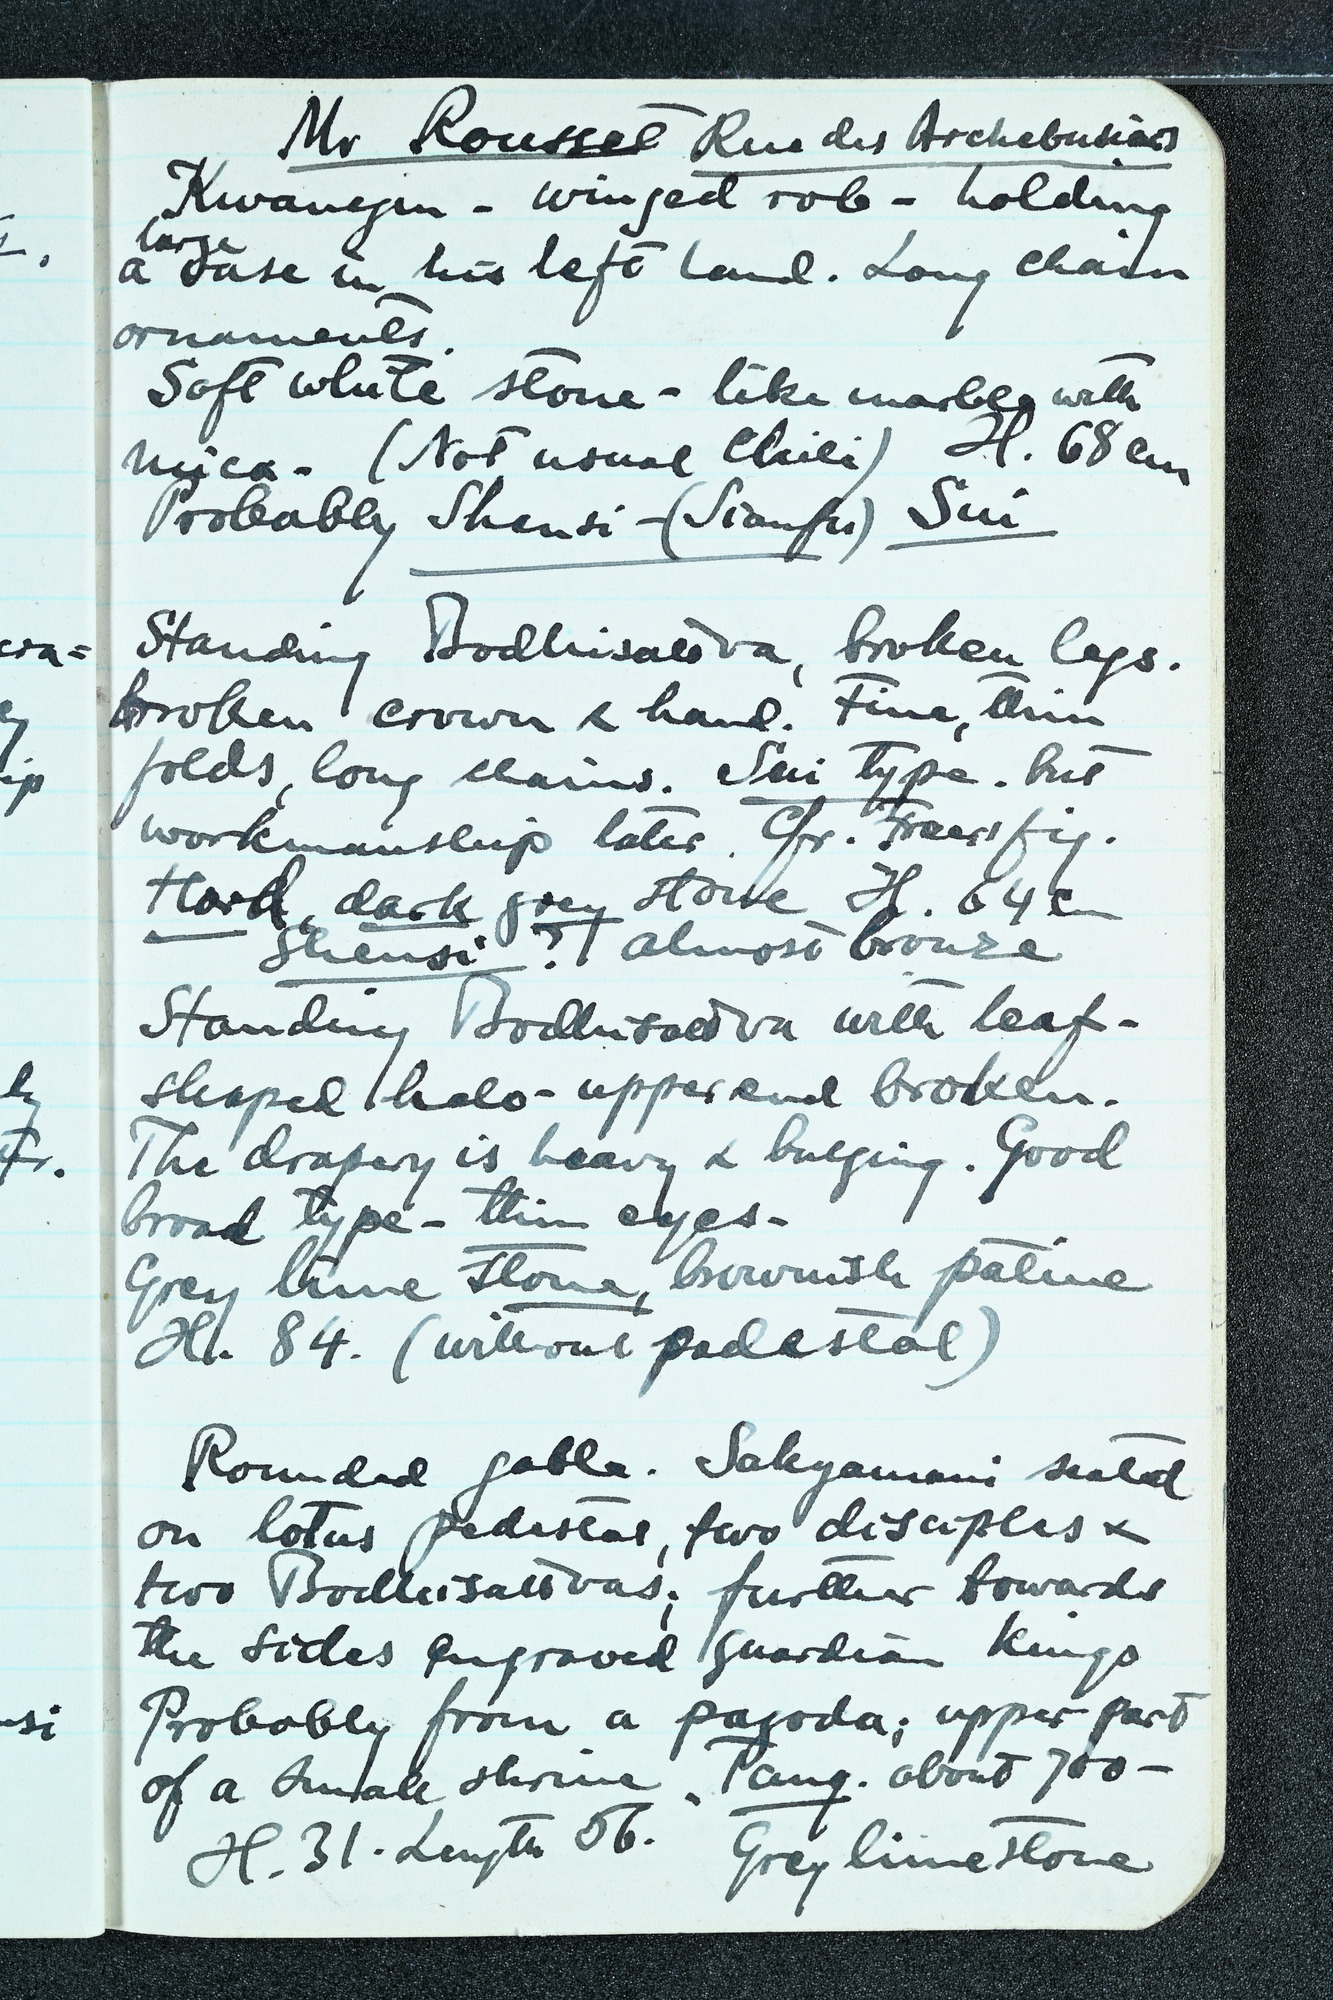 Mr Rousset Rue des Archebusiers
Kwanyin - winged rob - holding
large
a vase in his left hand. Long chain
ornaments.
Soft white stone - like marble with
mica - (Not usual Chili) H. 68 cm
Probably Shensi - (Sianfu) Sui
Standing Bodhisattva, broken legs.
broken crown & hand. Fine, thin
folds, long chains. Sui type. but
workmanship later. Cfr. Freers fig.
Hard, dark grey stone H. 64 cm
Shensi ?! almost bronze
Standing Bodhisattva with leaf-
shaped halo - upper end broken.
The drapery is heavy & bulging. Good
broad type - thin eyes -
Grey lime stone, brownish patine
H. 84. (without pedestal)
Rounded gable. Sakyamuni seated
on lotus pedestal, two disciples &
two Bodhisattvas; further towards
the sides engraved guardian kings
Probably from a pagoda; upper part
of a small shrine. T'ang. about 700 -
H. 31. Length 56. Grey limestone